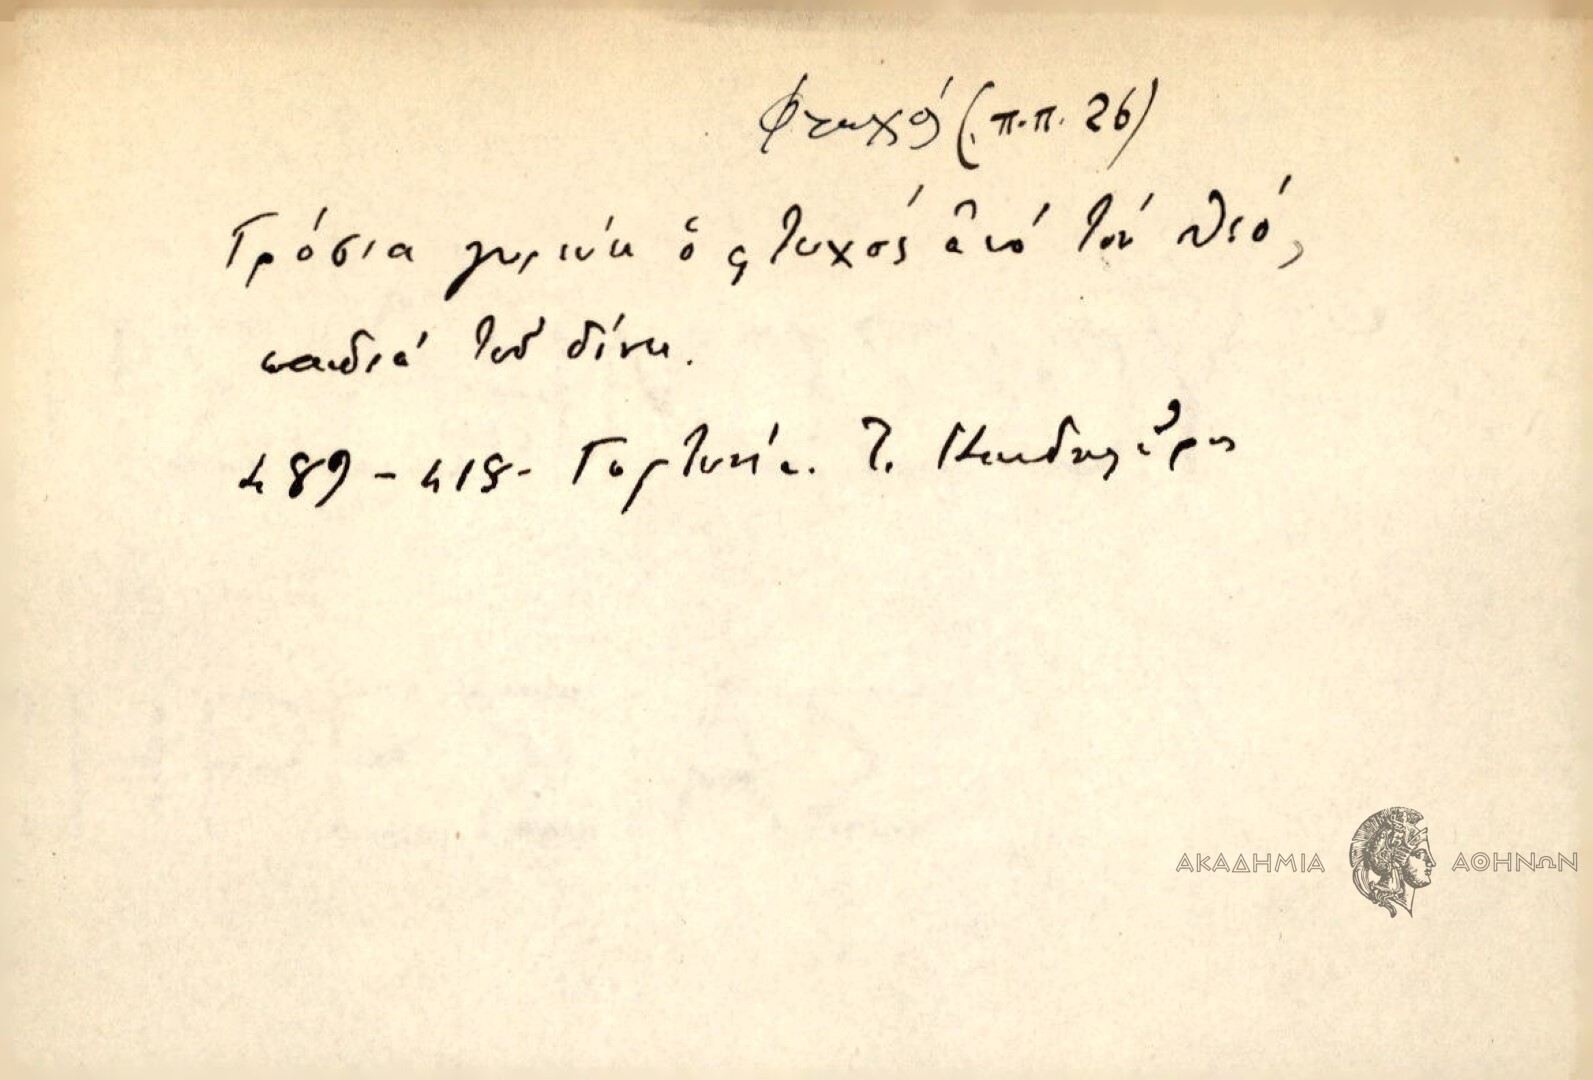 Φτωχός (π.π. 26)
Γρόσια γυρεύει ὁ φτωχός ἀπό τόν Θεό,
παιδιά τοῦ δίνει.
489 - 418 - Γορτυνία. Τ. Κανδηλῶρος
ΑΚΑΔΗΜΙΑ ΑΘΗΝΩΝ